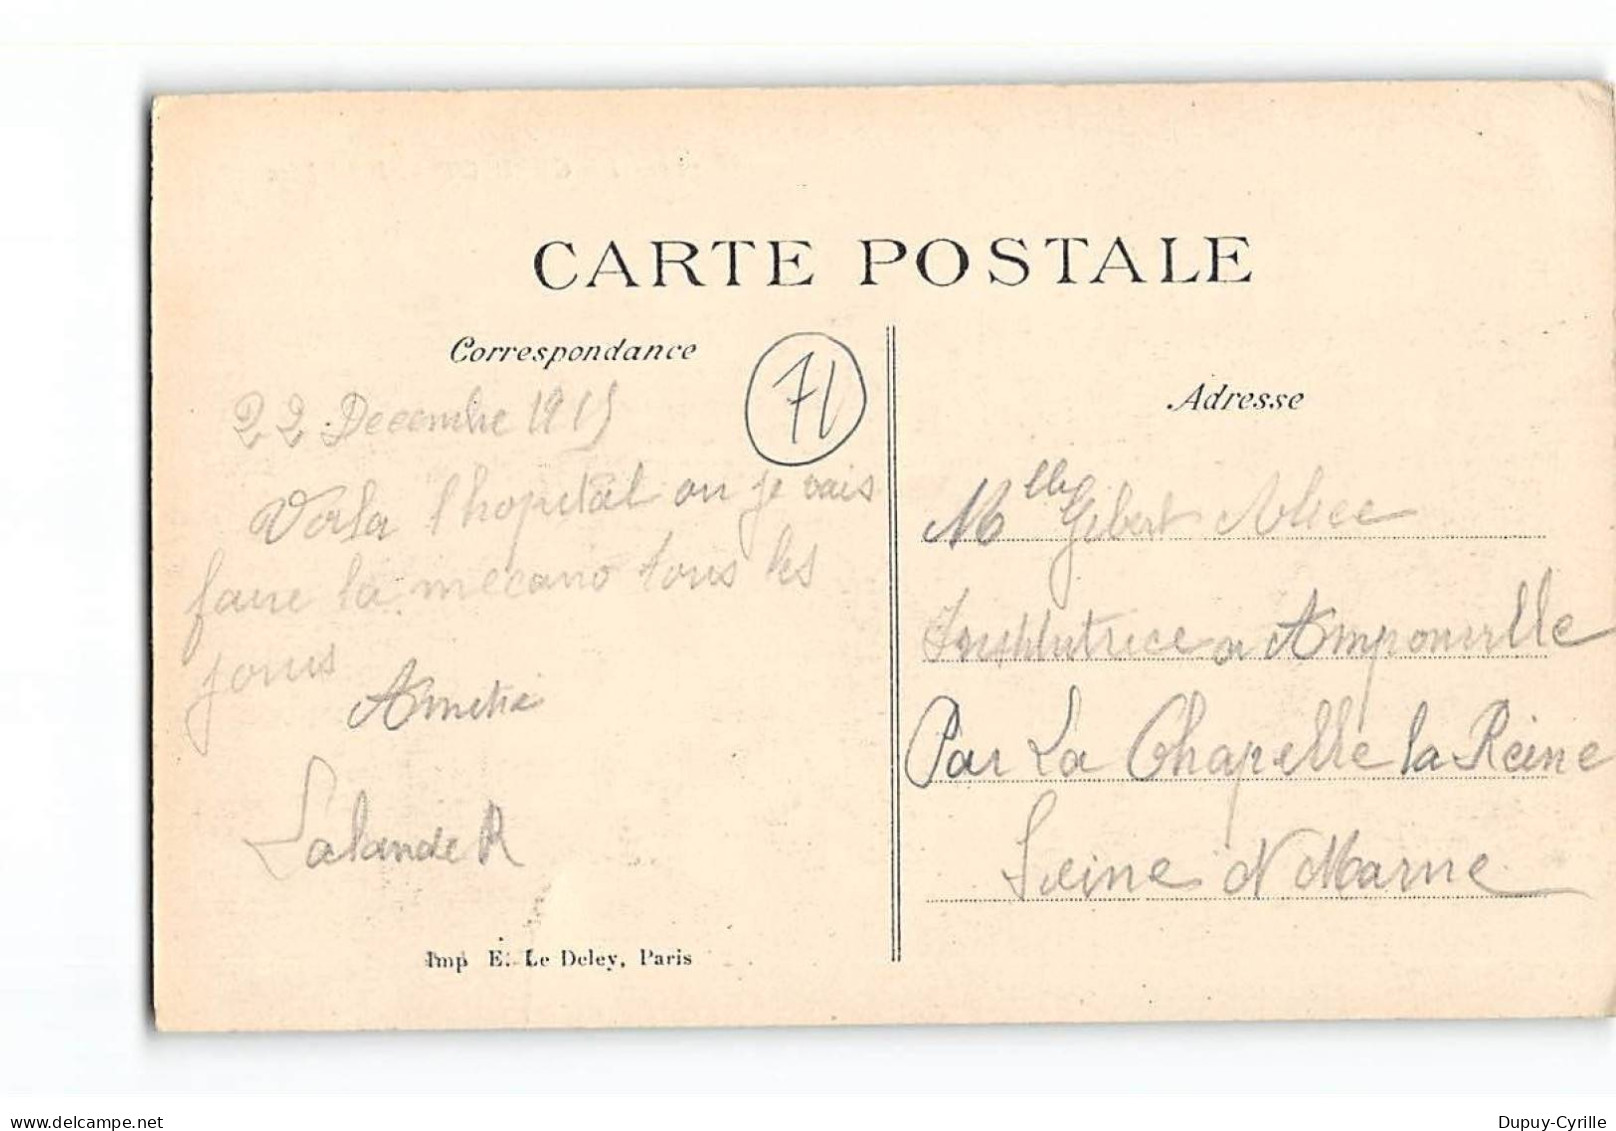 CARTE POSTALE
Correspondance
71
22 Decembre 1915
Voila l'hopital ou je vais
faire la mecano tous les
jours
Amitié
Lalande R
Imp E. Le Deley, Paris
Adresse
Melle Gibert Alice
Institutrice a Amponville
Par La Chapelle la Reine
Seine et Marne
www.delcampe.net
Dupuy-Cyrille